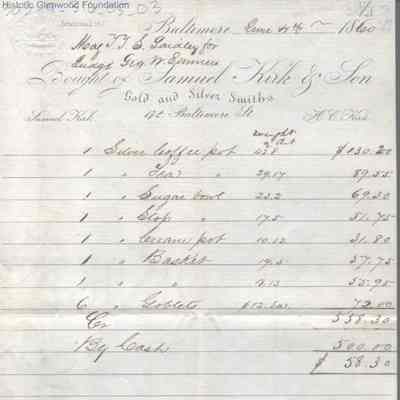 Historic Glenwood Foundation
Baltimore, June 4th 1860
Maj T. T. S. Laidley for
Judge Geo. W.
Bought of Samuel Kirk & Son
Gold and Silver Smiths
Samuel Kirk. 172 Baltimore St. H. C. Kirk.
weight
1 Silver Coffee pot 43.8 $130.20
1 " Tea " 29.17 89.55
1 " Sugar bowl 23.2 69.30
1 " Slop " 17.5 51.75
1 " Cream pot 10.12 31.80
1 " Basket 19.5 57.75
1 " " 55.95
6 " Goblets $12. ea. 72.00
558.30
Cr
By Cash 500.00
$ 58.30